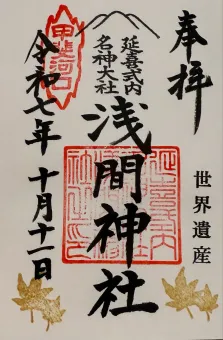 奉拝
世界遺産
延喜式内
名神大社
浅間神社
甲斐河口
令和七年十月十一日